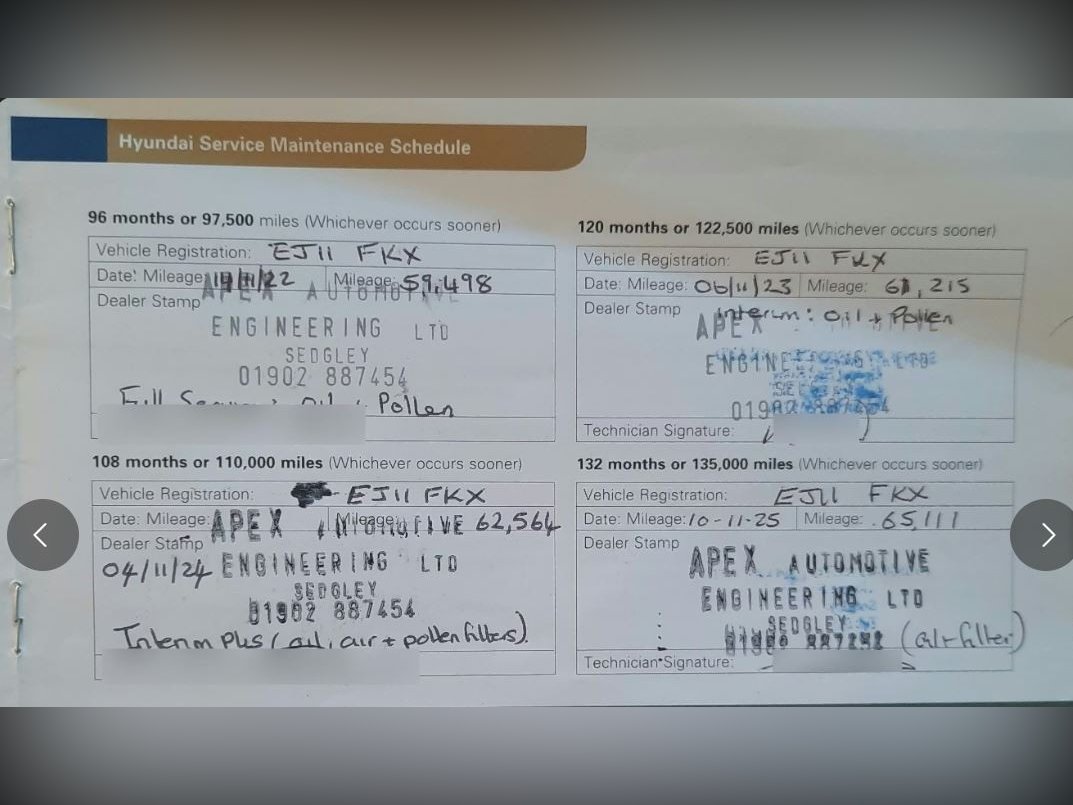 Hyundai Service Maintenance Schedule
96 months or 97,500 miles (Whichever occurs sooner)
Vehicle Registration: EJ11 FKX
Date: Mileage: /11/22 Mileage: 59,498
Dealer Stamp APEX AUTOMOTIVE
ENGINEERING LTD
SEDGLEY
01902 887454
Full Oil Pollen
108 months or 110,000 miles (Whichever occurs sooner)
Vehicle Registration: EJ11 FKX
Date: Mileage: APEX AUTOMOTIVE Mileage: 62,564
Dealer Stamp
04/11/24 ENGINEERING LTD
SEDGLEY
01902 887454
Interim Plus (oil, air + pollen filters).
120 months or 122,500 miles (Whichever occurs sooner)
Vehicle Registration: EJ11 FKX
Date: Mileage: 06/11/23 Mileage: 61,215
Dealer Stamp Interim: Oil + Pollen
APEX
ENGINEERING LTD
Technician Signature:
132 months or 135,000 miles (Whichever occurs sooner)
Vehicle Registration: EJ11 FKX
Date: Mileage: 10-11-25 Mileage: 65,111
Dealer Stamp
APEX AUTOMOTIVE
ENGINEERING LTD
SEDGLEY
(air filter)
Technician Signature: